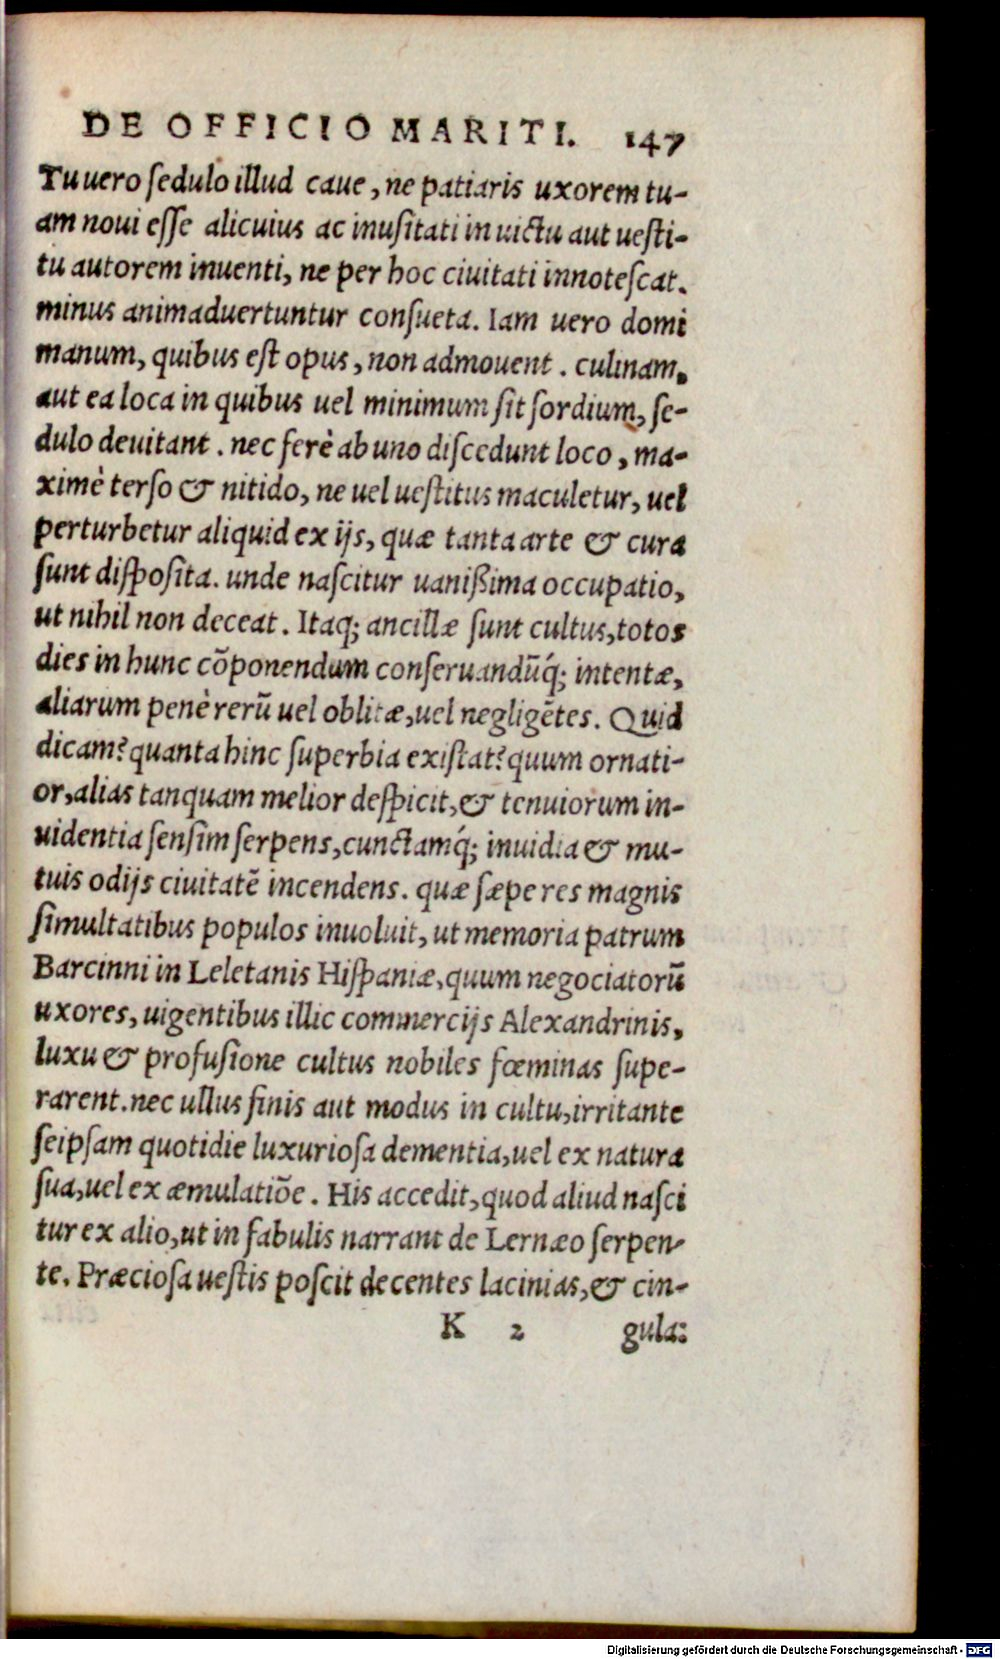 DE OFFICIO MARITI. 147
Tu uero ſedulo illud caue, ne patiaris uxorem tu-
am noui eſſe alicuius ac inuſitati in uictu aut ueſti-
tu autorem inuenti, ne per hoc ciuitati innoteſcat.
minus animaduertuntur conſueta. Iam uero domi
manum, quibus eſt opus, non admouent. culinam,
aut ea loca in quibus uel minimum ſit ſordium, ſe-
dulo deuitant. nec ferè ab uno diſcedunt loco, ma-
ximè terſo & nitido, ne uel ueſtitus maculetur, uel
perturbetur aliquid ex ijs, quæ tanta arte & cura
ſunt diſpoſita. unde naſcitur uanißima occupatio,
ut nihil non deceat. Itaq; ancillæ ſunt cultus, totos
dies in hunc cõponendum conſeruandũq́; intentæ,
aliarum penè rerũ uel oblitæ, uel negligẽtes. Quid
dicam? quanta hinc ſuperbia exiſtat? quum ornati-
or, alias tanquam melior deſpicit, & tenuiorum in-
uidentia ſenſim ſerpens, cunctamq́; inuidia & mu-
tuis odijs ciuitatẽ incendens. quæ ſæpe res magnis
ſimultatibus populos inuoluit, ut memoria patrum
Barcinni in Leletanis Hiſpaniæ, quum negociatorũ
uxores, uigentibus illic commercijs Alexandrinis,
luxu & profuſione cultus nobiles fœminas ſupe-
rarent. nec ullus finis aut modus in cultu, irritante
ſeipſam quotidie luxurioſa dementia, uel ex natura
ſua, uel ex æmulatiõe. His accedit, quod aliud naſci
tur ex alio, ut in fabulis narrant de Lernæo ſerpen-
te. Præcioſa ueſtis poſcit decentes lacinias, & cin-
K 2 gula:
Digitalisierung gefördert durch die Deutsche Forschungsgemeinschaft - DFG